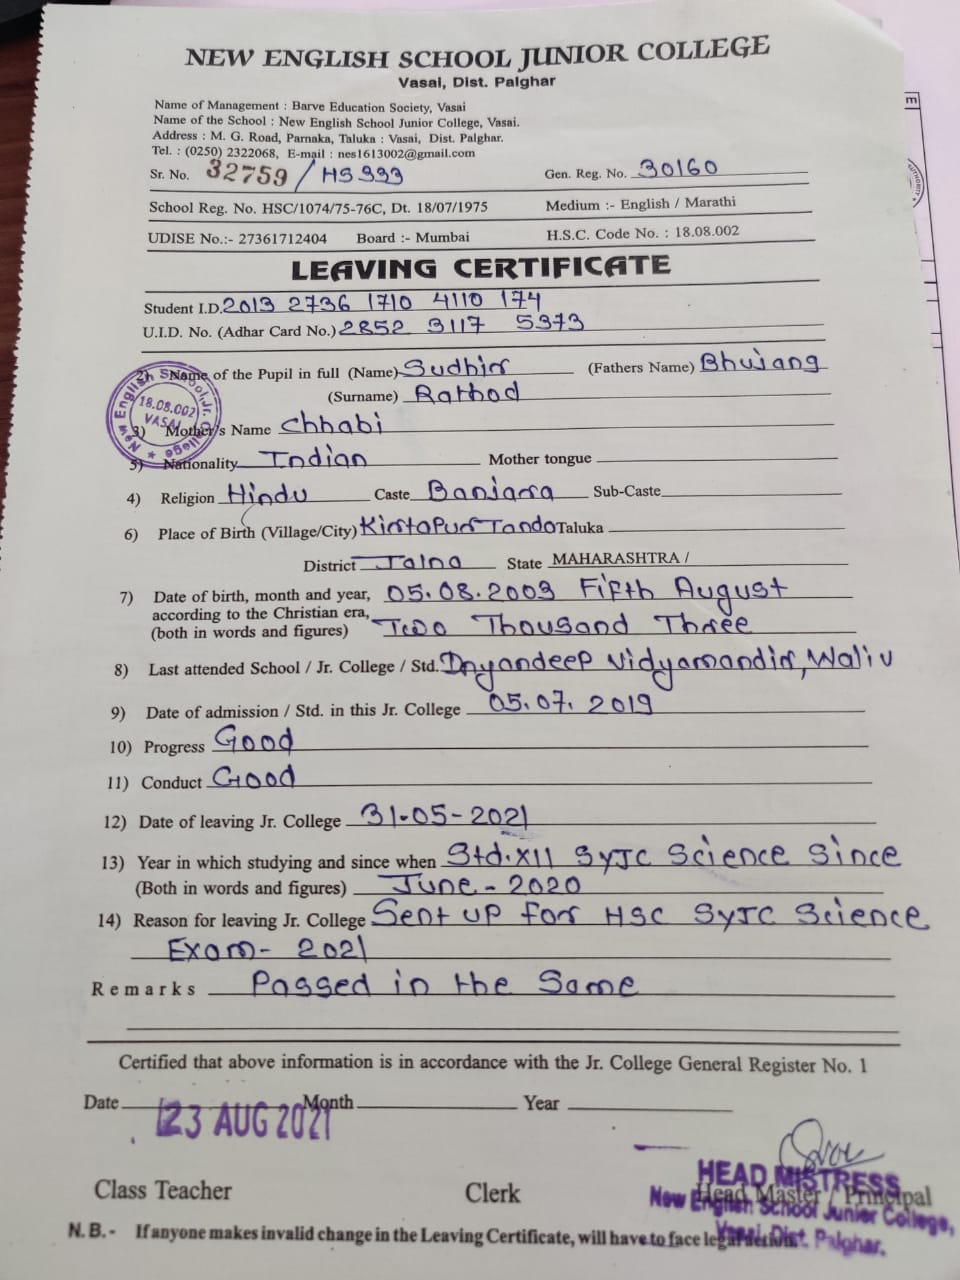 NEW ENGLISH SCHOOL JUNIOR COLLEGE
Vasai, Dist. Palghar
Name of Management : Barve Education Society, Vasai
Name of the School : New English School Junior College, Vasai.
Address : M. G. Road, Parnaka, Taluka : Vasai, Dist. Palghar.
Tel. : (0250) 2322068, E-mail : nes1613002@gmail.com
Sr. No. 32759 / HS 333 Gen. Reg. No. 30160
School Reg. No. HSC/1074/75-76C, Dt. 18/07/1975 Medium :- English / Marathi
UDISE No.:- 27361712404 Board :- Mumbai H.S.C. Code No. : 18.08.002
LEAVING CERTIFICATE
Student I.D. 2013 2736 1710 4110 174
U.I.D. No. (Adhar Card No.) 2852 3117 5373
2) Name of the Pupil in full (Name) Sudhir (Fathers Name) Bhujang
(Surname) Rathod
New English School, Jr. College
18.08.002
VASAI
3) Mother's Name Chhabi
5) Nationality Indian Mother tongue
4) Religion Hindu Caste Banjara Sub-Caste
6) Place of Birth (Village/City) Kirtapur Tanda Taluka
District Jalna State MAHARASHTRA /
7) Date of birth, month and year, 05.08.2003 Fifth August
according to the Christian era,
(both in words and figures) Two Thousand Three
8) Last attended School / Jr. College / Std. Dnyandeep Vidyamandir, Waliv
9) Date of admission / Std. in this Jr. College 05.07.2019
10) Progress Good
11) Conduct Good
12) Date of leaving Jr. College 31-05-2021
13) Year in which studying and since when Std.XII SYJC Science Since
(Both in words and figures) June - 2020
14) Reason for leaving Jr. College Sent up for HSC SYJC Science
Exam- 2021
Remarks Passed in the Same
Certified that above information is in accordance with the Jr. College General Register No. 1
Date Month Year
23 AUG 2021
HEAD MISTRESS
Class Teacher Clerk Head Master / Principal
New English School Junior College,
Vasai, Dist. Palghar.
N.B.- If anyone makes invalid change in the Leaving Certificate, will have to face legal action.